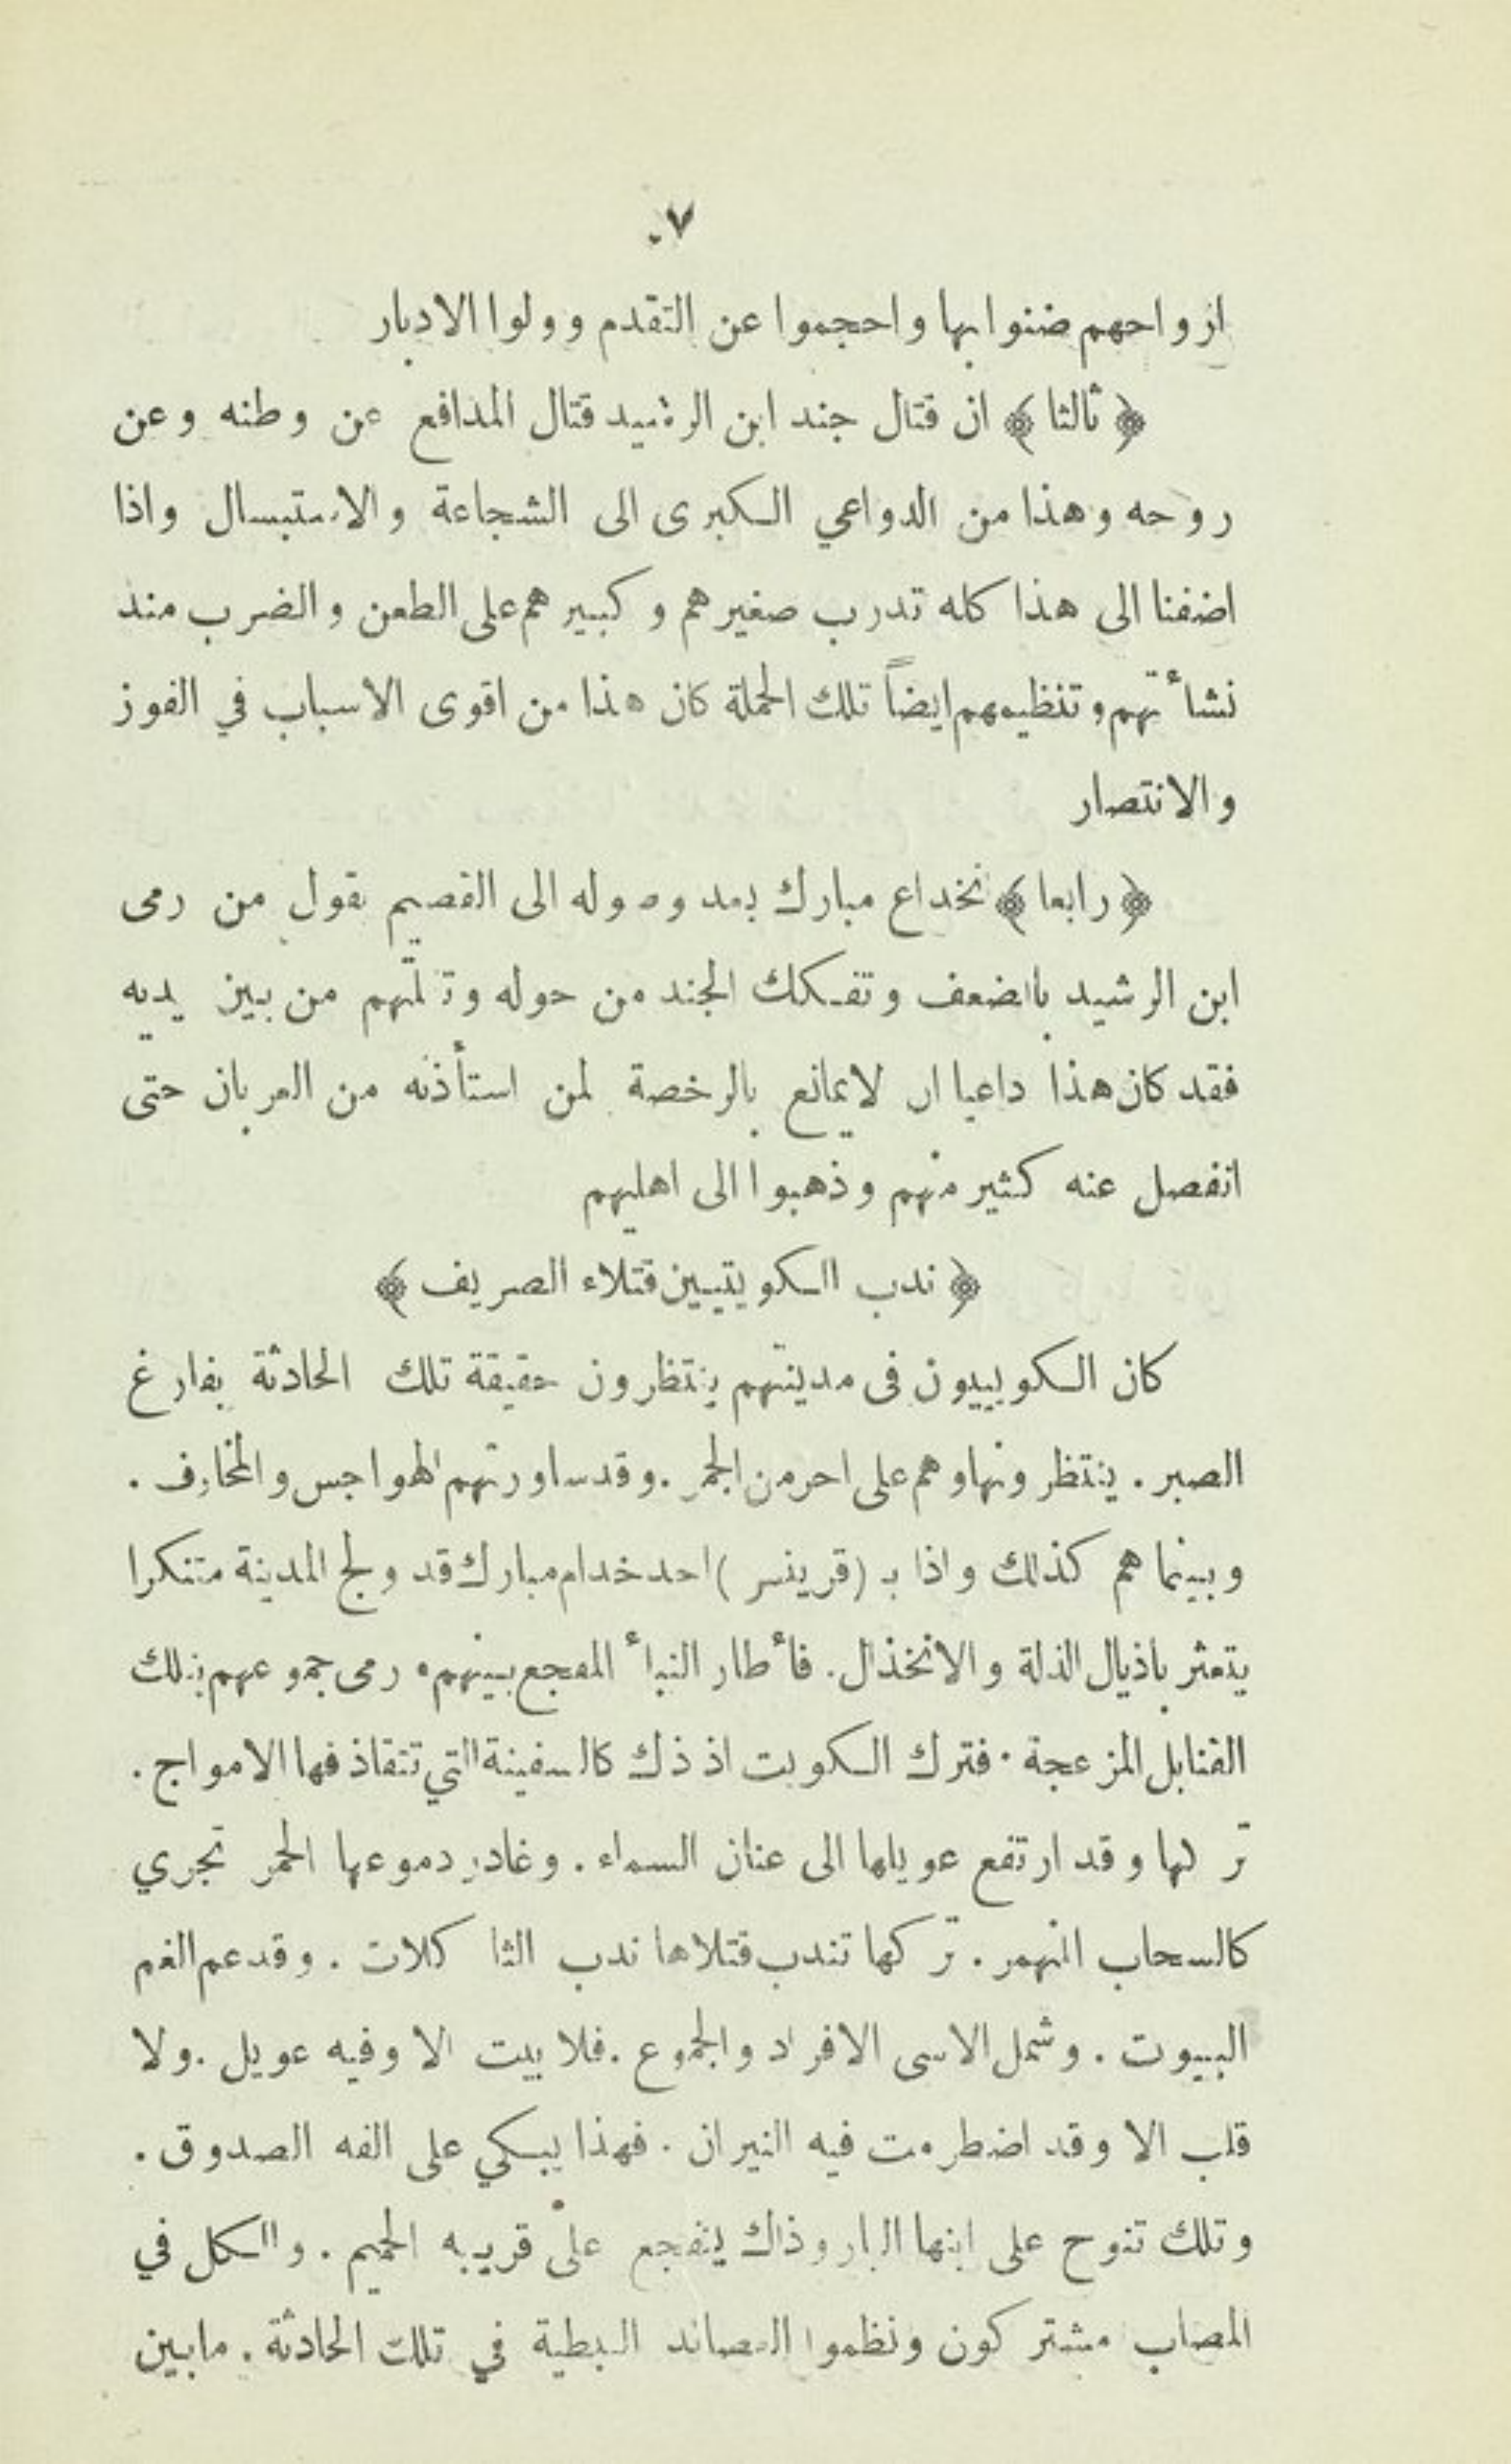 ٧٠
ارواحهم ضنوا بها واحجموا عن التقدم وولوا الادبار
﴿ ثالثا ﴾ ان قتال جند ابن الرشيد قتال المدافع عن وطنه وعن
روحه وهذا من الدواعي الكبرى الى الشجاعة والاستبسال واذا
اضفنا الى هذا كله تدرب صغيرهم وكبيرهم على الطعن والضرب منذ
نشأتهم وتنظيمهم ايضاً تلك الحملة كان هذا من اقوى الاسباب في الفوز
والانتصار
﴿ رابعا ﴾ نخداع مبارك بعد وصوله الى القصيم بقول من رمى
ابن الرشيد بالضعف وتفكك الجند من حوله وتألمهم من بين يديه
فقد كان هذا داعيا ان لا يمانع بالرخصة لمن استأذنه من العربان حتى
انفصل عنه كثير منهم وذهبوا الى اهليهم
﴿ ندب الكويتيين قتلاء الصريف ﴾
كان الكويتيون فى مدينتهم ينتظرون حقيقة تلك الحادثة بفارغ
الصبر . ينتظرونها وهم على احر من الجمر . وقد ساورتهم الهواجس والمخاوف .
وبينما هم كذلك واذا بـ (قرينس) احد خدام مبارك قد ولج المدينة متنكرا
يتعثر باذيال الذلة والانخذال . فأطار النبأ المفجع بينهم ورمى جموعهم بتلك
القنابل المزعجة . فترك الكويت اذ ذك كالسفينة التي تتقاذفها الامواج .
تركها وقد ارتفع عويلها الى عنان السماء . وغادر دموعها الحمر تجري
كالسحاب المنهمر . تركها تندب قتلاها ندب الثاكلات . وقد عم الغم
البيوت . وشمل الاسى الافراد والجموع . فلا بيت الا وفيه عويل . ولا
قلب الا وقد اضطرمت فيه النيران . فهذا يبكي على الفه الصدوق .
وتلك تنوح على ابنها البار وذاك يتفجع على قريبه الحميم . والكل في
المصاب مشتركون ونظموا القصائد النبطية في تلك الحادثة . مابين